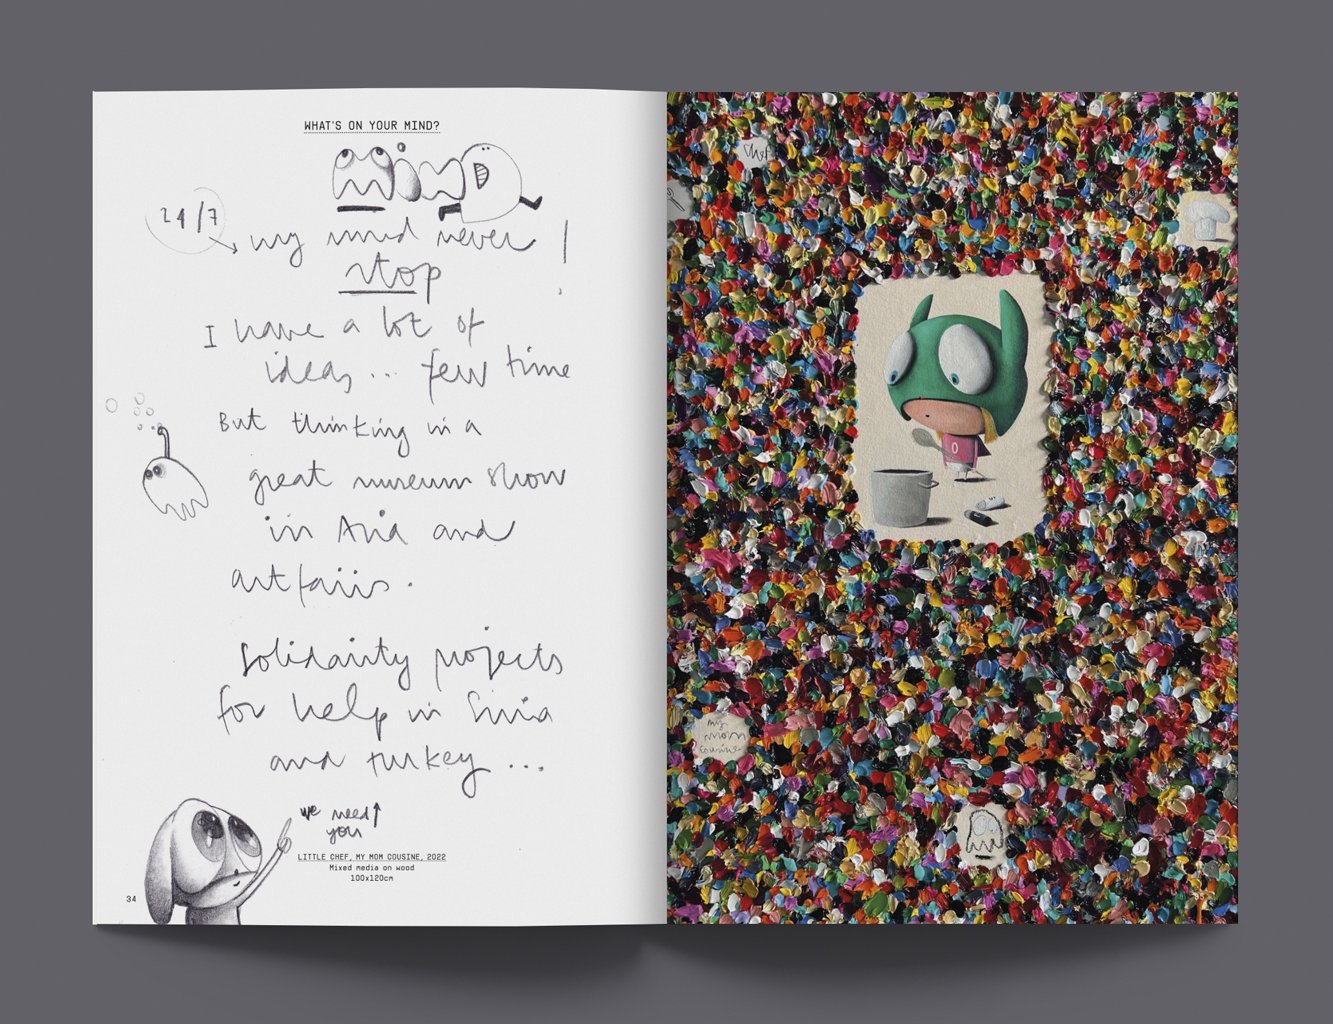 WHAT'S ON YOUR MIND?
MiND
24/7
my mind never !
stop
I have a lot of
ideas... few time
But thinking in a
great museum show
in Asia and
artfairs.
Solidarity projects
for help in Siria
and turkey...
we need
you
LITTLE CHEF, MY MOM COUSINE, 2022
Mixed media on wood
100x120cm
34
Chef
0
my
mom
cousine